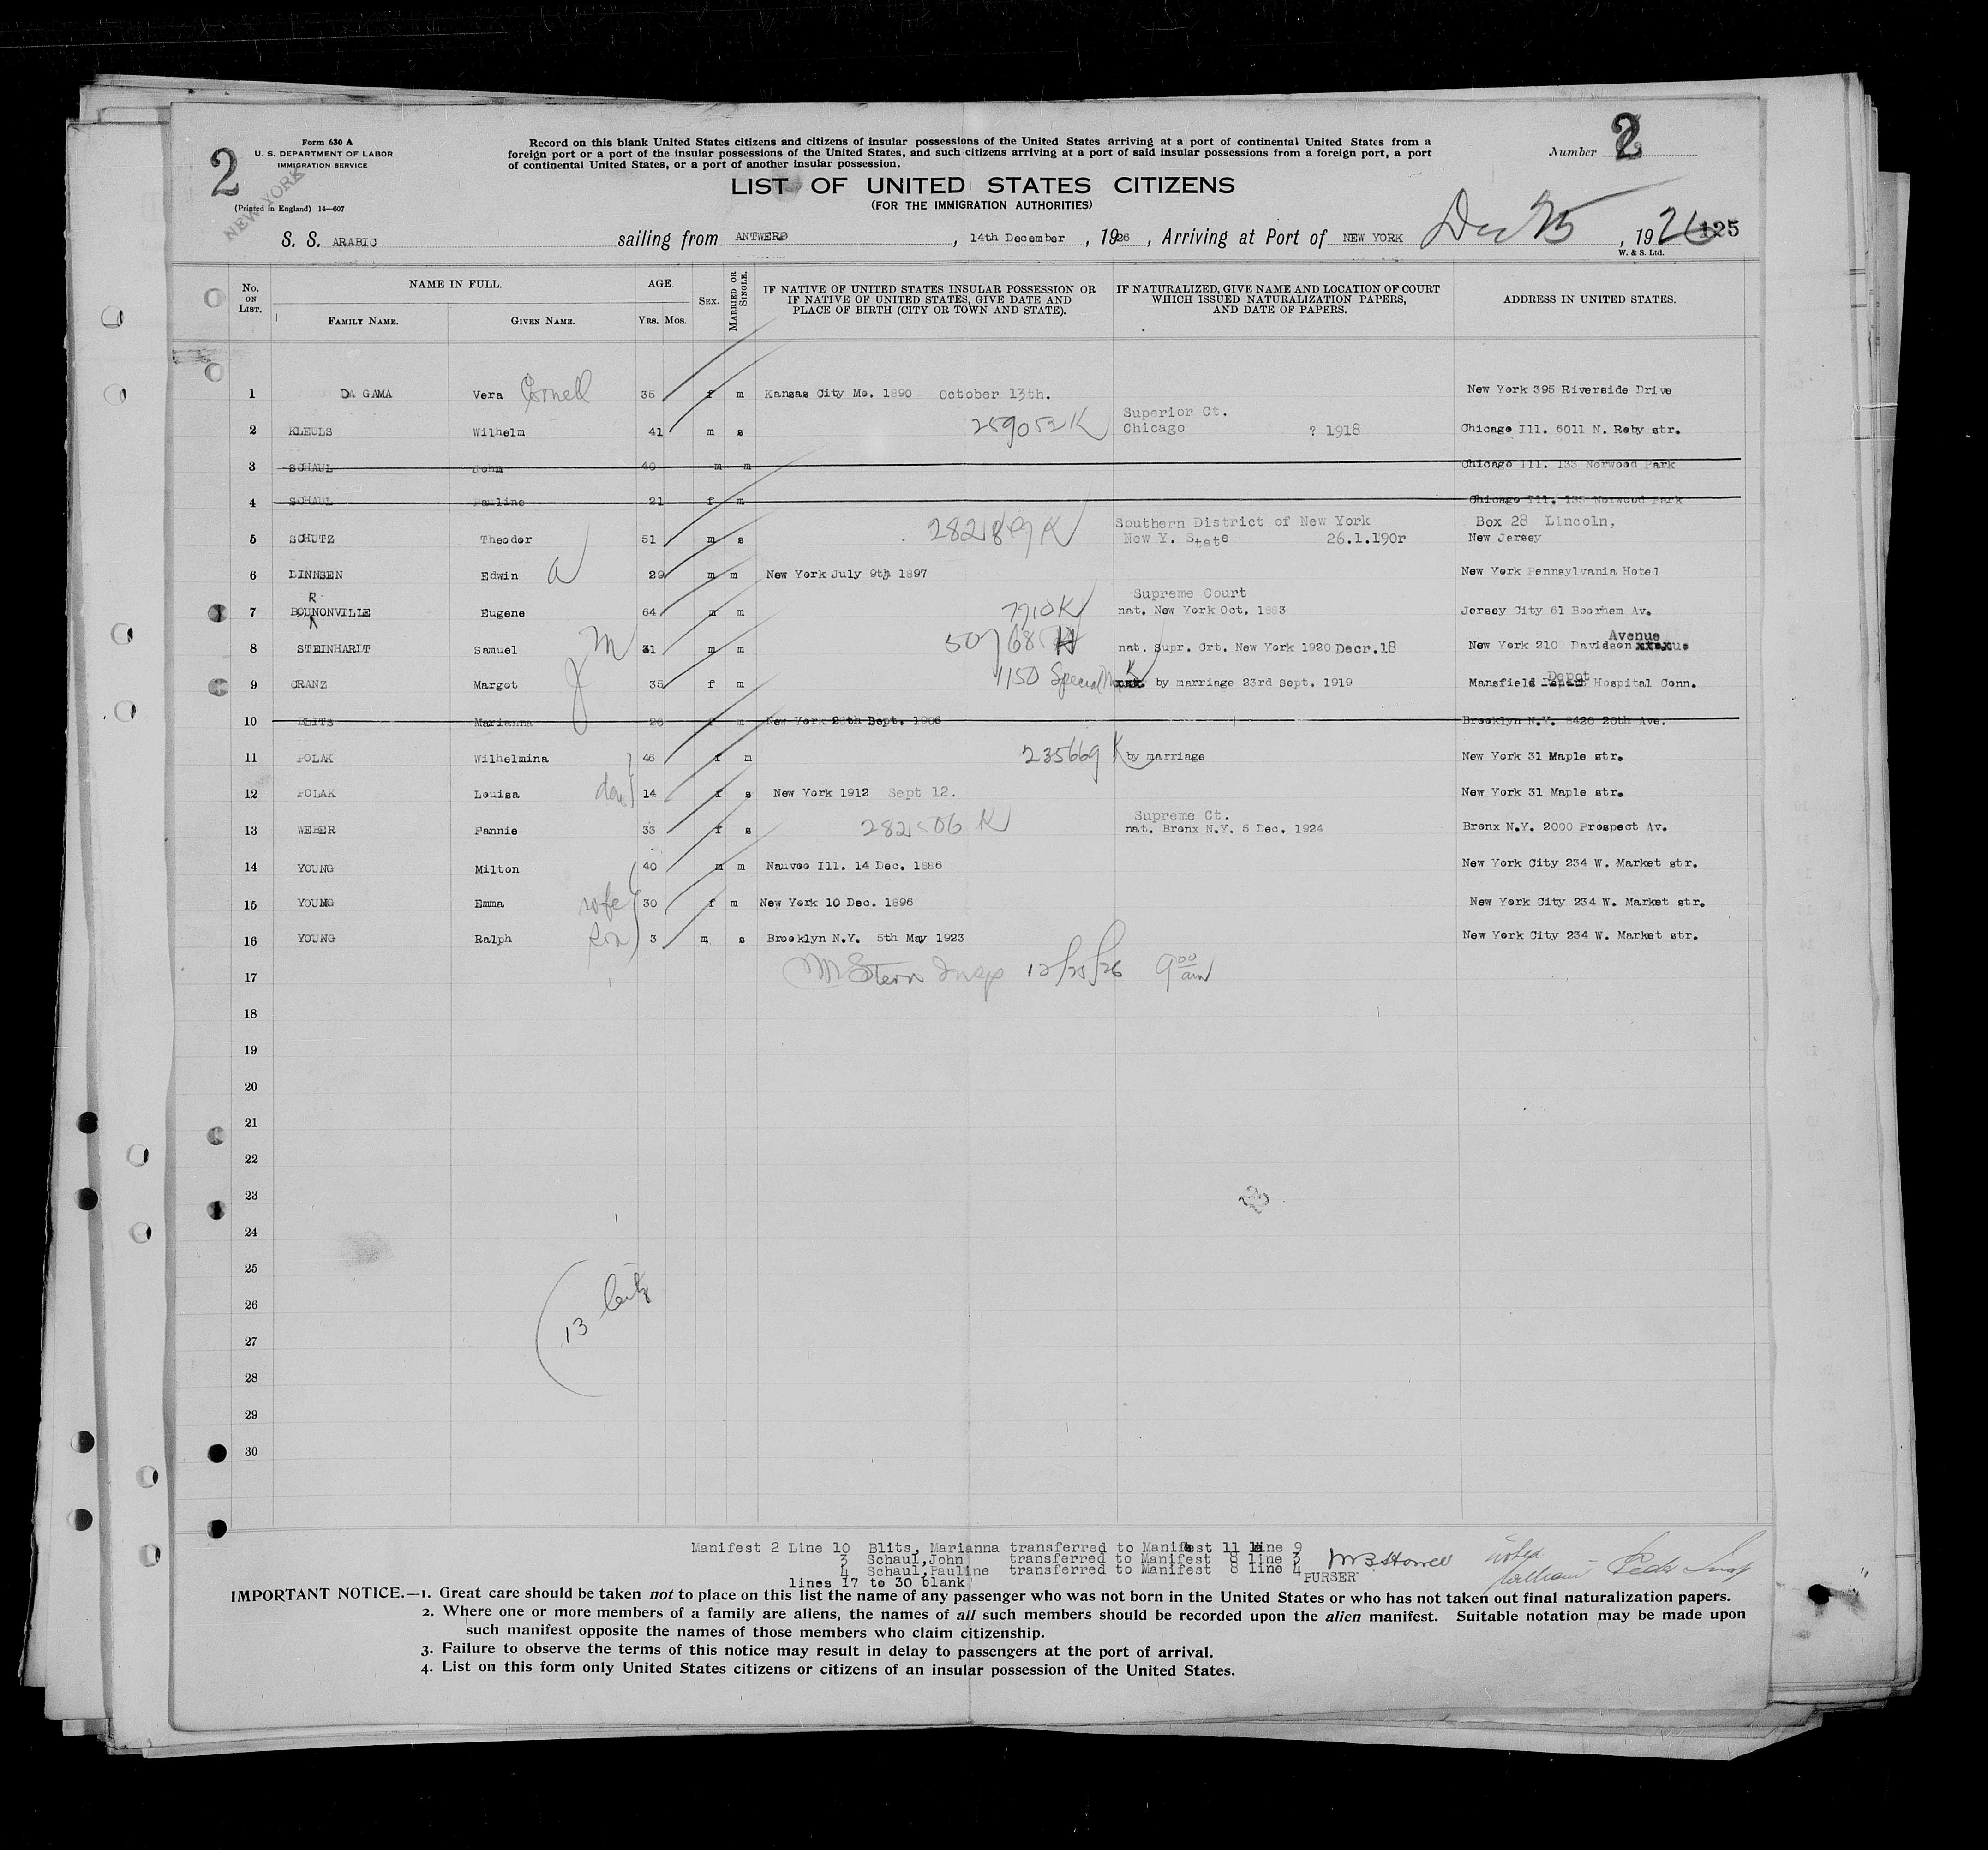 2
Form 630 A
U. S. DEPARTMENT OF LABOR
IMMIGRATION SERVICE
NEW YORK
(Printed in England) 14—607
Record on this blank United States citizens and citizens of insular possessions of the United States arriving at a port of continental United States from a
foreign port or a port of the insular possessions of the United States, and such citizens arriving at a port of said insular possessions from a foreign port, a port
of continental United States, or a port of another insular possession.
Number 2
LIST OF UNITED STATES CITIZENS
(FOR THE IMMIGRATION AUTHORITIES)
S. S. ARABIC sailing from ANTWERP, 14th December, 1926, Arriving at Port of NEW YORK Dec 25, 1926 125
W. & S. Ltd.
No. ON LIST. NAME IN FULL. AGE. SEX. MARRIED OR SINGLE. IF NATIVE OF UNITED STATES INSULAR POSSESSION OR IF NATIVE OF UNITED STATES, GIVE DATE AND PLACE OF BIRTH (CITY OR TOWN AND STATE). IF NATURALIZED, GIVE NAME AND LOCATION OF COURT WHICH ISSUED NATURALIZATION PAPERS, AND DATE OF PAPERS. ADDRESS IN UNITED STATES.
FAMILY NAME. GIVEN NAME. YRS. MOS.
1 DA GAMA Vera Cornell 35 f m Kansas City Mo. 1890 October 13th. New York 395 Riverside Drive
2 KLEULS Wilhelm 41 m s 259052K Superior Ct. Chicago ? 1918 Chicago Ill. 6011 N. Roby str.
3 SCHAUL John 40 m m Chicago Ill. 133 Norwood Park
4 SCHAUL Pauline 21 f m Chicago Ill. 133 Norwood Park
5 SCHUTZ Theodor 51 m s Southern District of New York New Y. State 26.1.190r Box 28 Lincoln, New Jersey
6 DINNSEN Edwin 29 m m New York July 9th 1897 New York Pennsylvania Hotel
7 BOURNONVILLE Eugene 64 m m 7710K Supreme Court nat. New York Oct. 1883 Jersey City 61 Boorhem Av.
8 STEINHARDT Samuel M 31 m m nat. Supr. Crt. New York 1920 Decr.18 New York 210 Davidson Avenue
9 CRANZ Margot 35 f m 1150 Special K by marriage 23rd Sept. 1919 Mansfield Depot Hospital Conn.
10 BLITS Marianna 26 f m New York 28th Sept. 1906 Brooklyn N.Y. 8420 20th Ave.
11 POLAK Wilhelmina 46 f m 235669 K by marriage New York 31 Maple str.
12 POLAK Louisa dau 14 f s New York 1912 Sept 12. New York 31 Maple str.
13 WEBER Fannie 33 f s 282506 K Supreme Ct. nat. Bronx N.Y. 5 Dec. 1924 Bronx N.Y. 2000 Prospect Av.
14 YOUNG Milton 40 m m Nauvoo Ill. 14 Dec. 1886 New York City 234 W. Market str.
15 YOUNG Emma wife 30 f m New York 10 Dec. 1896 New York City 234 W. Market str.
16 YOUNG Ralph son 3 m s Brooklyn N.Y. 5th May 1923 New York City 234 W. Market str.
17 M Stern Insp 12/25/26 9 00 am
18
19
20
21
22
23
24
25
26
27
28
29
30
13 Citz
Manifest 2 Line 10 Blits, Marianna transferred to Manifest 11 line 9
3 Schaul,John transferred to Manifest 8 line 3
4 Schaul,Pauline transferred to Manifest 8 line 4
lines 17 to 30 blank
PURSER
IMPORTANT NOTICE.—1. Great care should be taken not to place on this list the name of any passenger who was not born in the United States or who has not taken out final naturalization papers.
2. Where one or more members of a family are aliens, the names of all such members should be recorded upon the alien manifest. Suitable notation may be made upon
such manifest opposite the names of those members who claim citizenship.
3. Failure to observe the terms of this notice may result in delay to passengers at the port of arrival.
4. List on this form only United States citizens or citizens of an insular possession of the United States.